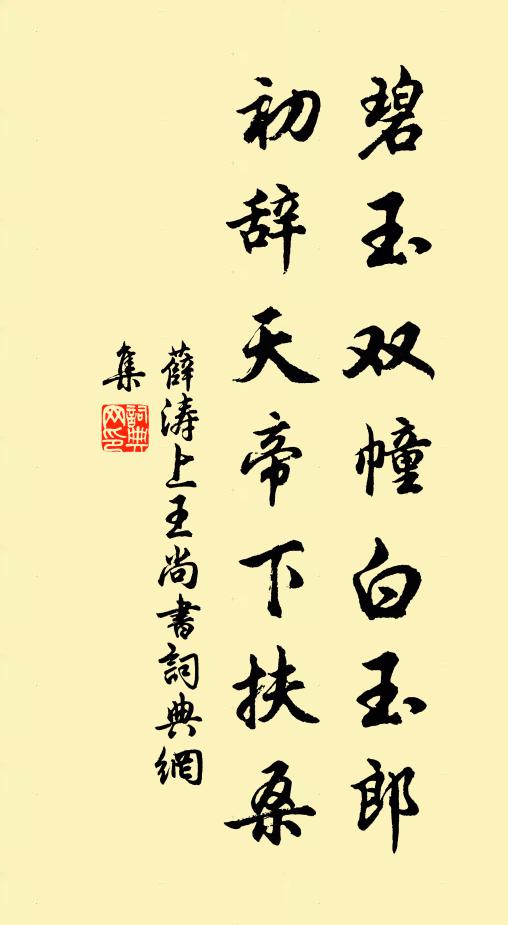 碧玉双幢白玉郎
初辞天帝下扶桑
薛涛上王尚書詞典網
集
詞典
网印